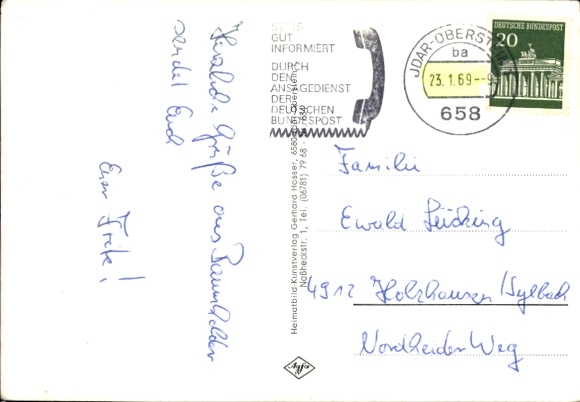 Herzliche Grüße aus Baumholder
sendet Euch
Euer Fritz!
GUT
INFORMIERT
DURCH
DEN
ANSAGEDIENST
DER
DEUTSCHEN
BUNDESPOST
IDAR-OBERSTEIN
ba
23.1.69--9
658
DEUTSCHE BUNDESPOST
20
Heimatbild-Kunstverlag Gerhard Hosser, 6580 Idar-Oberstein
Naßheckstr. 1, Tel. (06781) 79 68
Familie
Ewald Lücking
4912 Holzhausen/Sylbach
Nordheider Weg
Agfa